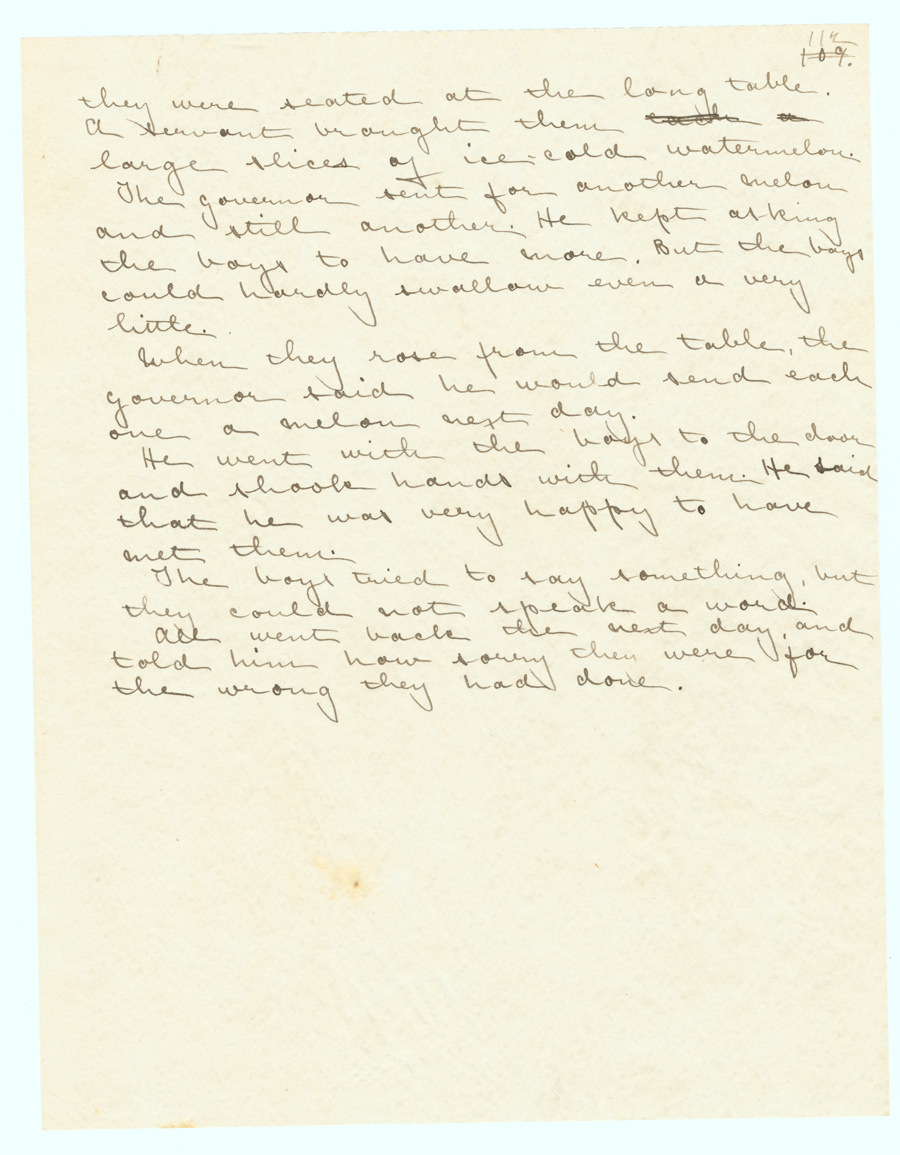 112
109.
they were seated at the long table.
A servant brought them each a
large slices of ice-cold watermelon.
The governor sent for another melon
and still another. He kept asking
the boys to have more. But the boys
could hardly swallow even a very
little.
When they rose from the table, the
governor said he would send each
one a melon next day.
He went with the boys to the door
and shook hands with them. He said
that he was very happy to have
met them.
The boys tried to say something, but
they could not speak a word.
All went back the next day, and
told him how sorry they were for
the wrong they had done.